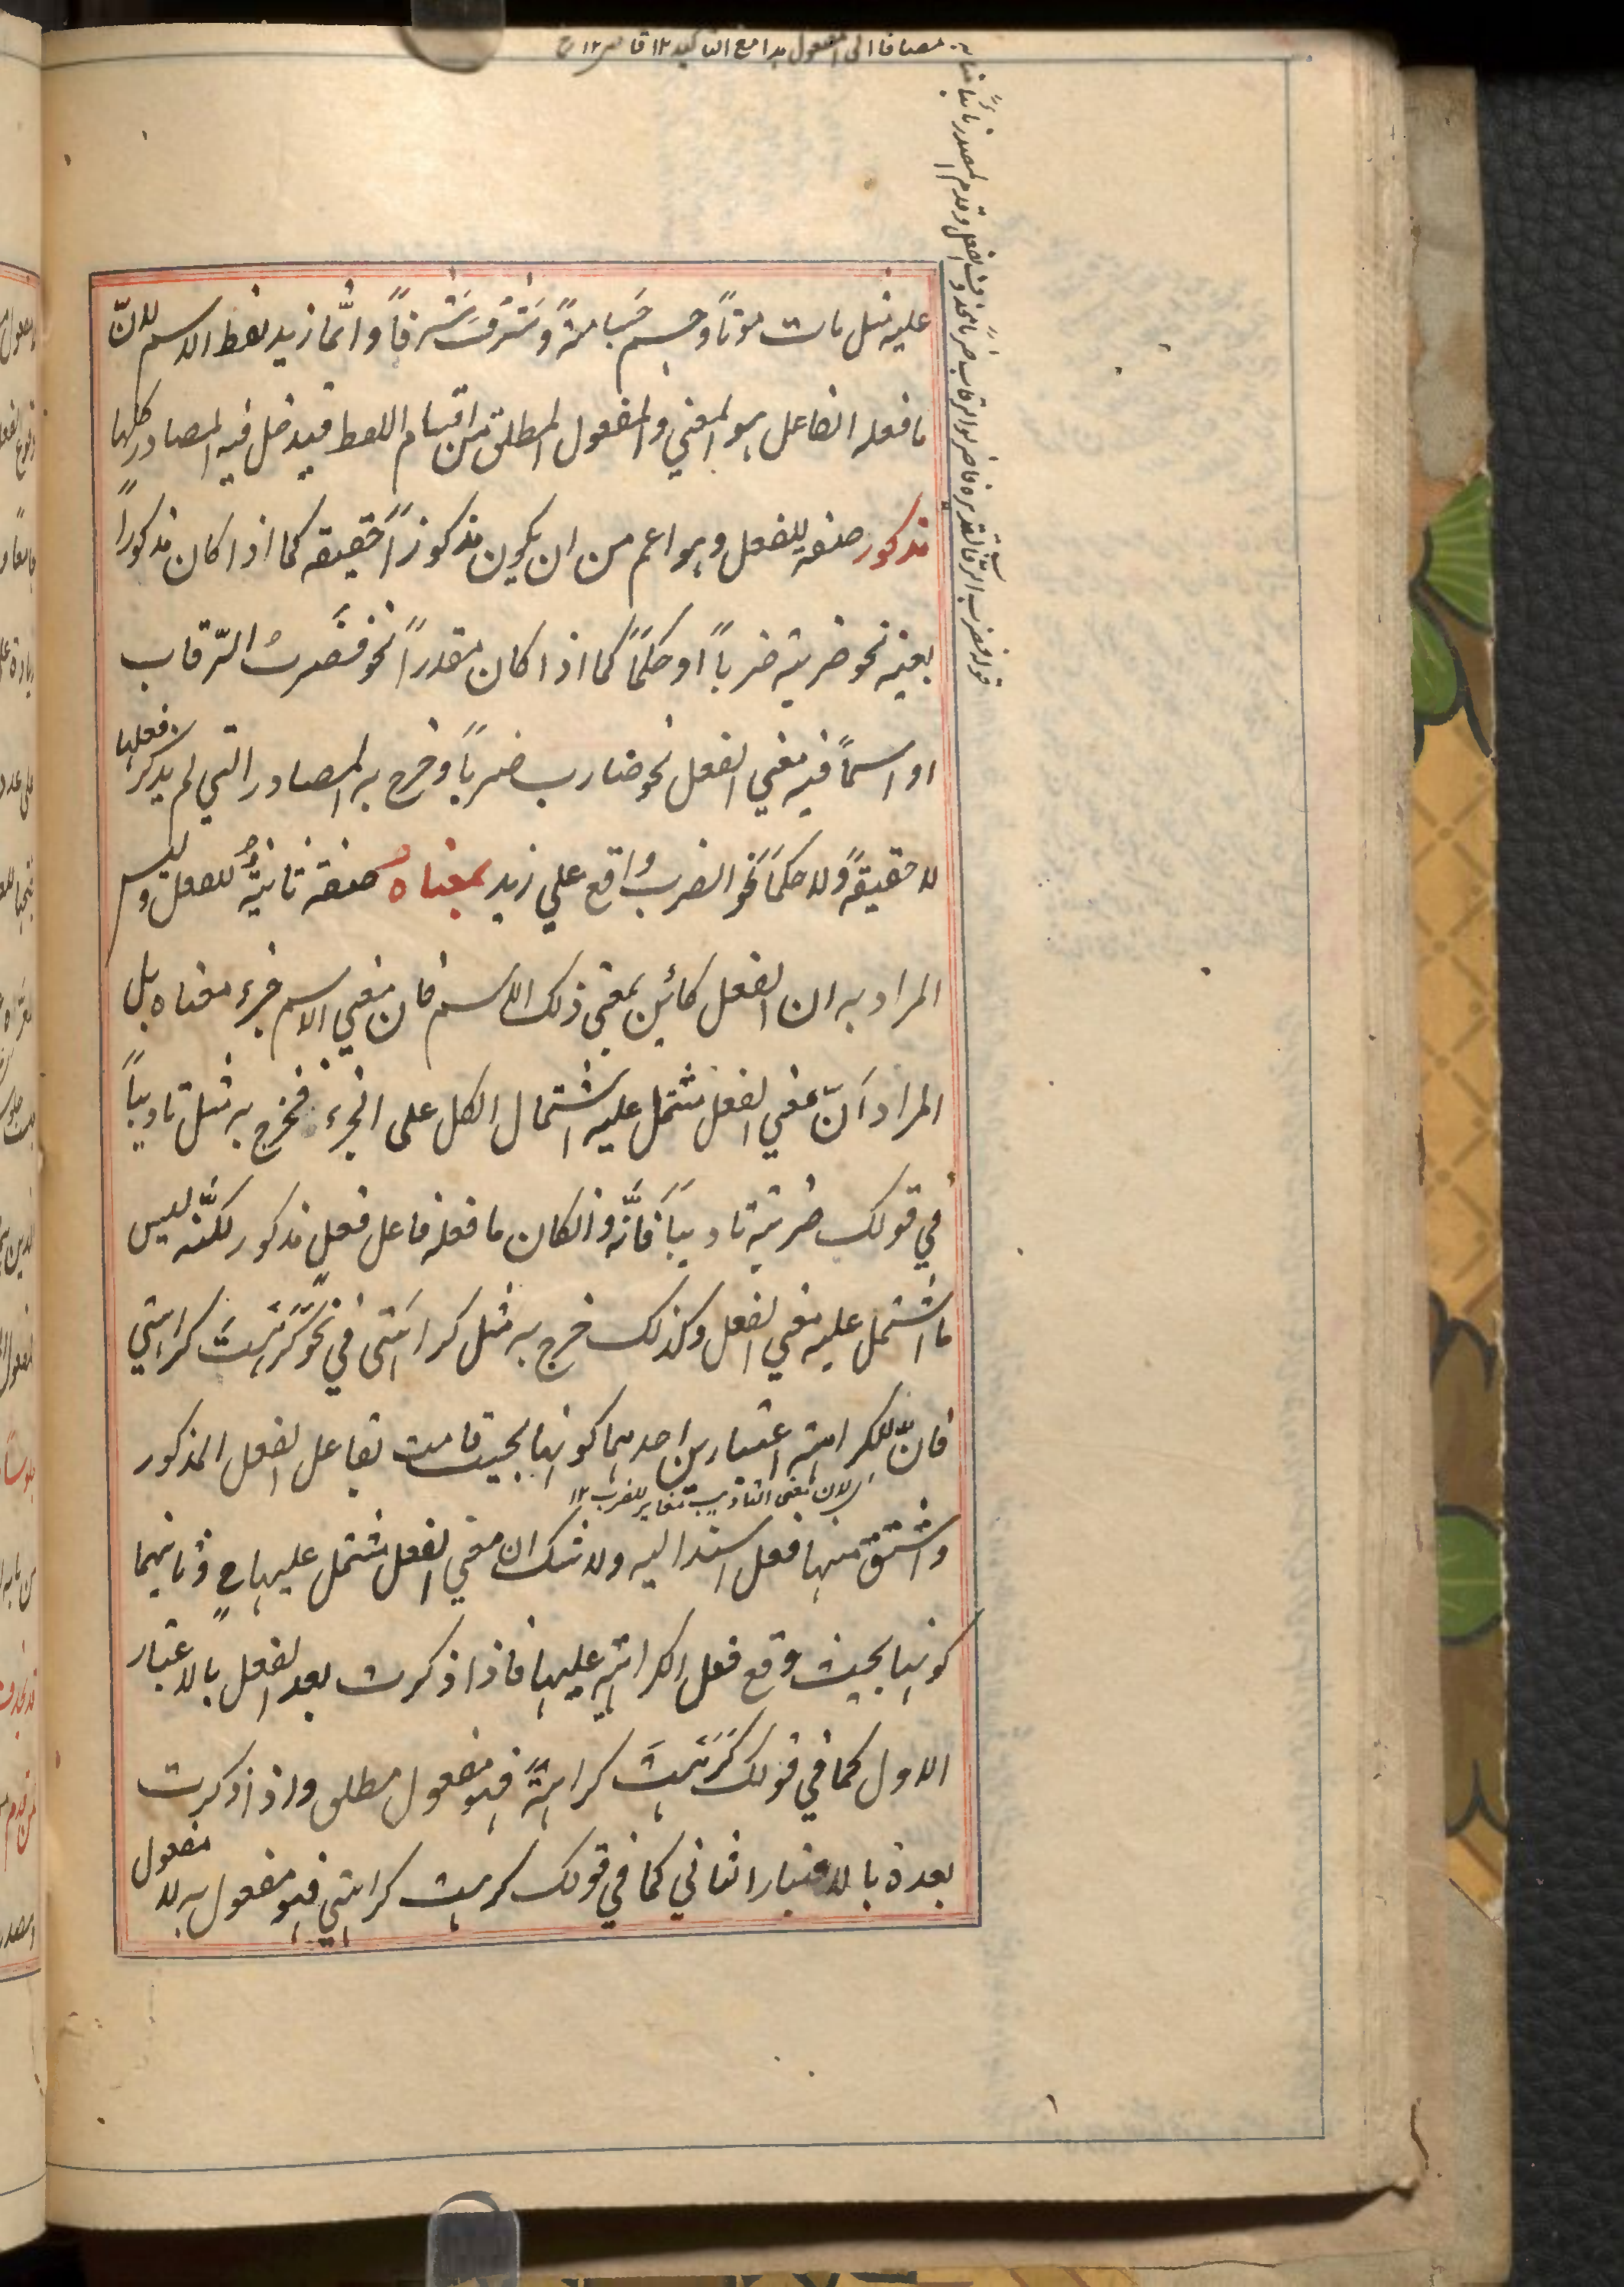 عليه مثل مات موتاً وجسم جَسامةً وشَرُفَ شَرفاً وانّما زيد لفظ الاسم لانّ
ما فعله الفاعل هو المعني والمفعول المطلق من اقسام اللفظ فيدخل فيه المصادر كلها
مذكور صفة للفعل وهو اعم من ان يكون مذكوراً حقيقة كما اذا كان مذكوراً
بعينه نحو ضربته ضرباً او حكماً كما اذا كان مقدراً نحو فضَربَ الرّقاب
او اسماً فيه معني الفعل نحو ضارب ضرباً وخرج به المصادر التي لم يذكر فعلها
لا حقيقةً ولا حكماً نحو الضرب واقع علي زيد بمعناه صفة ثانيةٌ للفعل وليس
المراد به ان الفعل كائن بمعني ذلك الاسم فان معني الاسم جزء معناه بل
المراد اَنّ معني الفعل مشتمل عليه اشتمال الكل على الجزء فخرج به مثل تاديباً
في قولك ضربته تاديباً فانَّه وانكان ما فعله فاعل فعلٍ مذكور لكنَّه ليس
ما اشتمل عليه معني الفعل وكذلك خرج به مثل كراهتي في نحو كَرِهْتُ كراهتي
فانّ للكراهة اعتبارين احدهما كونها بحيث قامت بفاعل الفعل المذكور
اي لان معنى التاديب مغاير للضرب ١٢
واشتق منها فعل اسند اليه ولا شك ان معني الفعل مشتمل عليها ح وثانيهما
كونها بحيث وقع فعل الكراهة عليها فاذا ذكرت بعد الفعل بالاعتبار
الاول كما في قولك كَرِهْتُ كراهةً فهو مفعول مطلق واذا ذكرت
بعده بالاعتبار الثاني كما في قولك كرهت كراهتي فهو مفعول به لا مفعول
قوله فضرب الرقاب تقديره فاضربوا الرقاب ضرباً فحذف الفعل وقدم المصدر نائباً منابه
مضافا الى المفعول هذا مع التاكيد ١٢